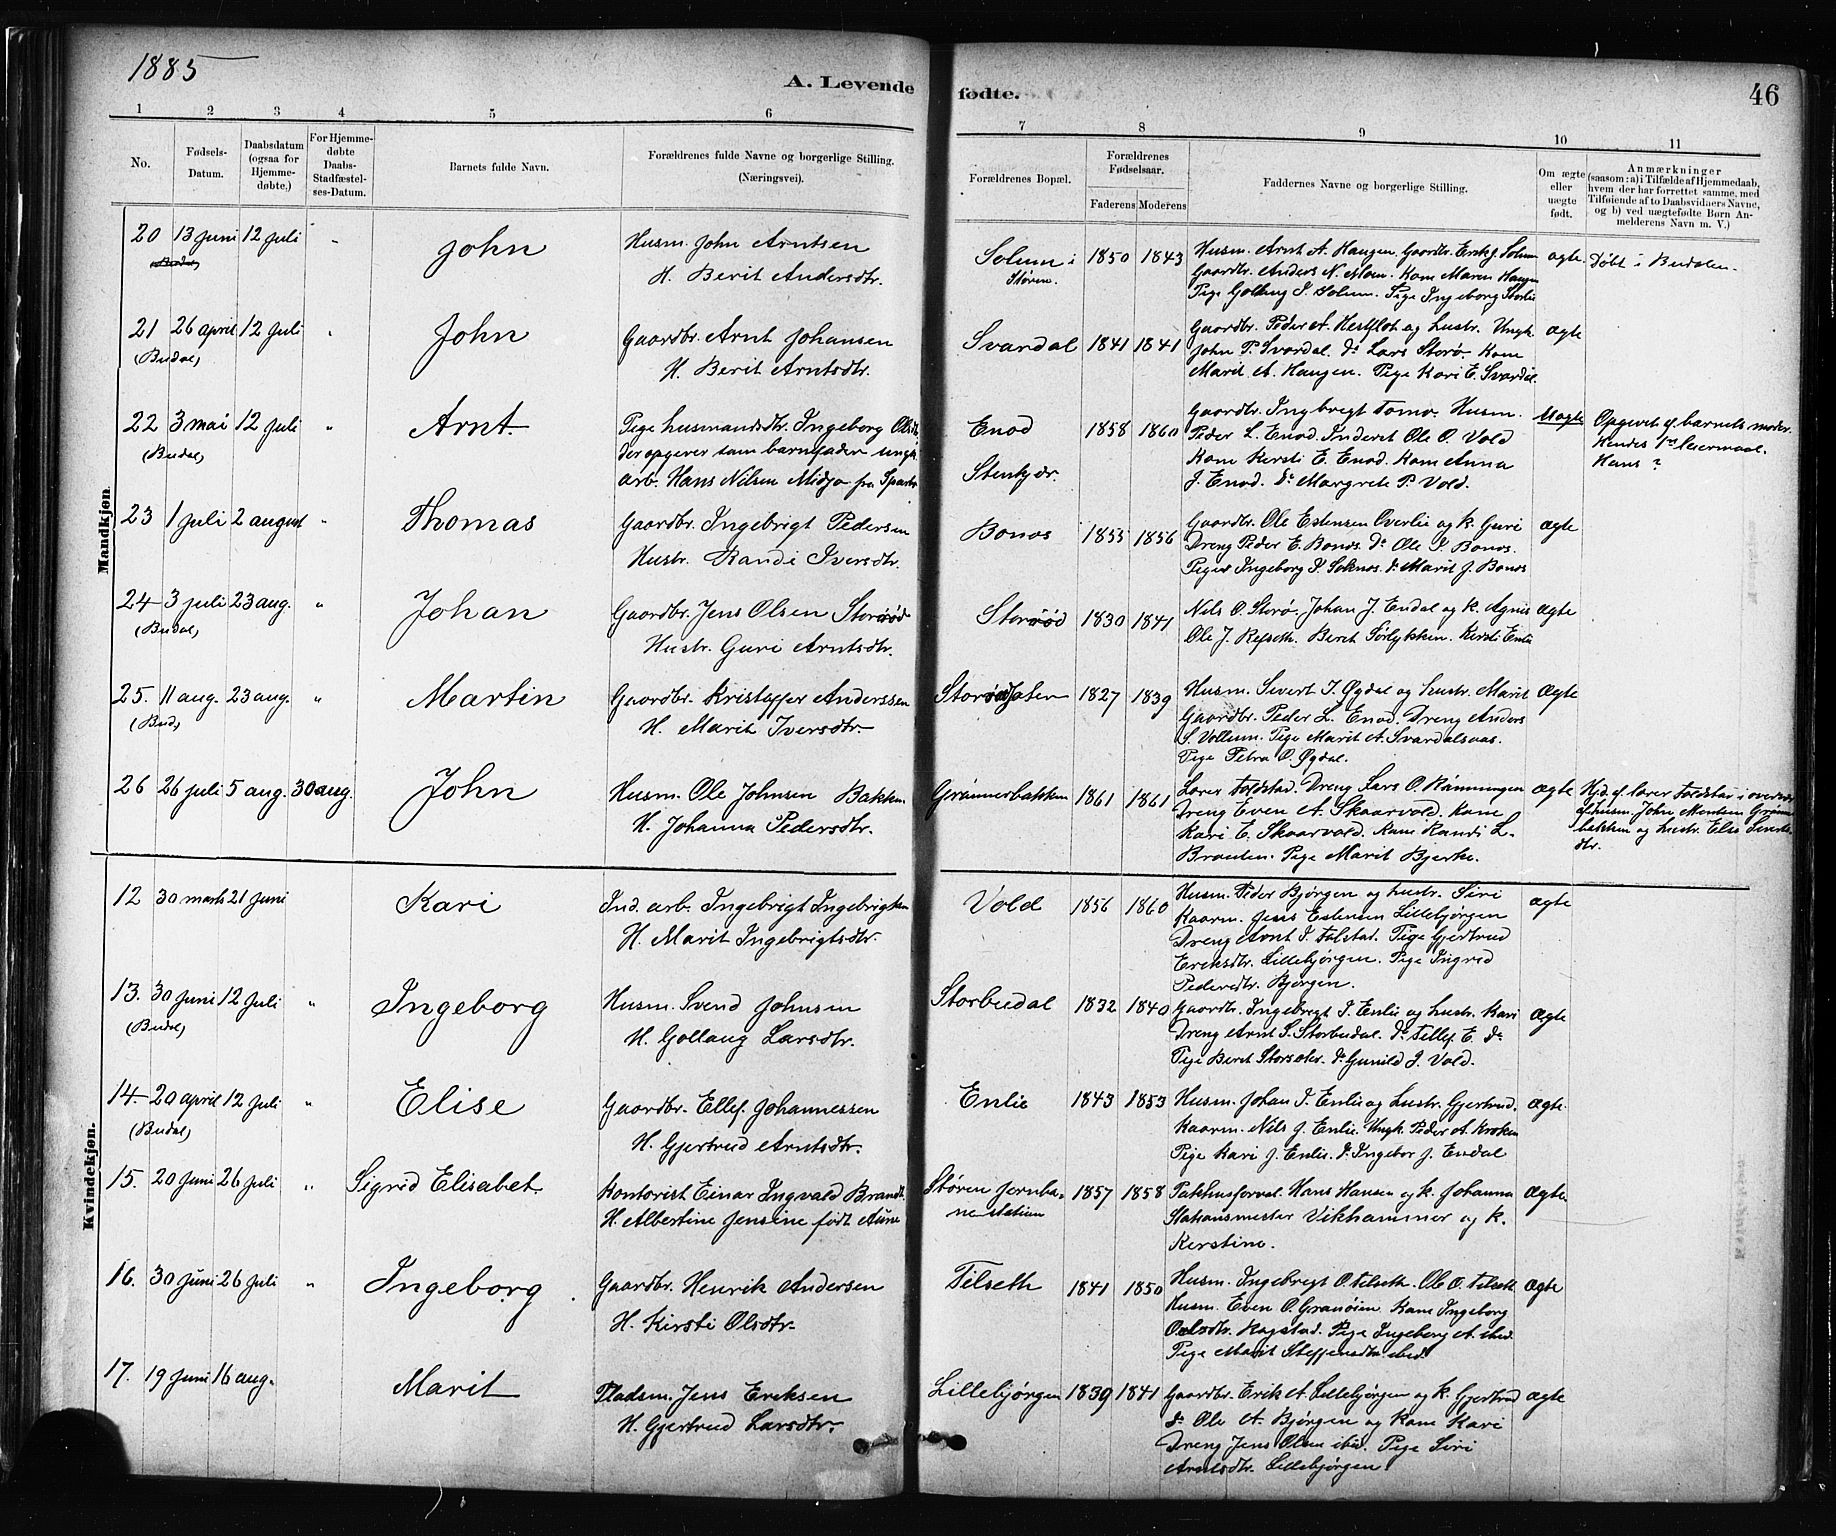 1885
A. Levende
fødte.
46
1 2 3 4 5 6 7 8 9 10 11
No.
Fødsels-Datum.
Daabsdatum (ogsaa for Hjemmedøbte,)
For Hjemmedøbte Daabs-Stadfæstelses-Datum.
Barnets fulde Navn.
Forældrenes fulde Navne og borgerlige Stilling.
(Næringsvei).
Forældrenes Bopæl.
Forældrenes Fødselsaar.
Faderens Moderens
Faddernes Navne og borgerlige Stilling.
Om ægte eller uægte født.
Anmærkninger
(saasom: a) i Tilfælde af Hjemmedaab,
hvem der har forrettet samme, med
Tilføiende af to Daabsvidners Navne,
og b) ved uægtefødte Børn An-
melderens Navn m. V.)
Mandkjøn.
20 13 Juni 12 Juli " John
Husm. John Arntsen
H. Berit Andersdtr.
Solum i
Støren.
1850 1843
Husm. Arnt A. Haugen. Gaardbr. Erik J. Solum
Gaardbr. Anders N. Moen. Kone Maren Haugen
Pige Gollaug J. Solum. Pige Ingeborg Storlie
ægte. Døbt i Budalen.
21 26 april 12 Juli " John
(Budal)
Gaardbr. Arnt Johansen
H. Berit Arntsdtr.
Svardal 1841 1841
Gaardbr. Peder A. Hestflot og Hustr. Ungk.
John P. Svardal. do Lars Storø. Kone
Marit A. Haugen. Pige Kari E. Svardal.
ægte
22 3 mai 12 Juli " Arnt.
(Budal)
Pige husmandsdtr. Ingeborg Olsdtr.
der opgiver som barnefader ungk.
arb. Hans Nilsen Midjo fra Sparbo
Enod
Stenkjær.
1858 1860
Gaardbr. Ingbrigt Tomo. Husm.
Peder L. Enod. Inderst Ole O. Vold
Kone Kersti E. Enod. Kone Anna
J. Enod. do Margrete P. Vold.
Uægte
Opgivet af barnets moder.
Hendes 1ste Leiermaal.
Hans ?
23 1 Juli 2 august " Thomas
Gaardbr. Ingebrigt Pedersen
Hustr. Randi Iversdtr.
Bonos 1855 1856
Gaardbr. Ole Estensen Overlie og K. Guri
Dreng Peder E. Bonos. do Ole I. Bonos.
Piger Ingeborg I. Soknes. do Marit J. Bonos
ægte
24 3 juli 23 aug. " Johan
(Budal)
Gaardbr. Jens Olsen Storrød
Hustr. Guri Arntsdtr.
Storrød 1830 1841
Nils O. Storø. Johan J. Endal og K. Agnis
Ole J. Refseth. Berit Sørløkken. Kersti Enlie
ægte
25. 11 aug. 23 aug. " Martin
(Bud)
Gaardbr. Kristoffer Anderssen
H. Marit Iversdtr.
1827 1839
Husm. Sivert I. Øgdal og hustr. Marit
Gaardbr. Peder L. Enod. Dreng Anders
S. Vollum. Pige Marit A. Svardalsaas.
Pige Petra O. Øgdal.
ægte
26 26 juli 5 aug. 30 aug. John
Husm. Ole Johnsen Bakken
H. Johanna Pedersdtr.
Grønnerbakken 1861 1861
Lærer Foldstad. Dreng Lars O. Rønningen
Dreng Even A. Skaarvold. Kone
Kari E. Skaarvold. Kone Randi L.
Brauten. Pige Marit Bjerke.
ægte
Hjd. af lærer Foldstad i overvær
af husm. John Mentsen Grønner-
bakken og hustr. Else
dtr.
Kvindekjøn.
12 30 marts 21 Juni Kari
Ind. arb. Ingebrigt Ingebrigtsen
H. Marit Ingebrigtsdtr.
Vold 1856 1860
Husm. Peder Bjørgen og hustr. Siri
Kaarm. Jens Estensen Lillebjørgen
Dreng Arnt I. Folstad. Pige Gjertrud
Eriksdtr. Lillebjørgen. Pige Ingrid
Pedersdtr. Bjørgen.
ægte
13. 30 Juni 12 Juli " Ingeborg
(Budal)
Husm. Svend Johnsen
H. Gollaug Larsdtr.
Storbudal 1832 1840
Gaardbr. Ingebrigt I. Enlie og hustr. Kari
Dreng Arnt S. Storbudal. do Tellef E. do
Pige Berit Storsoler. do Gunild J. Vold.
ægte
14. 20 april 12 Juli " Elise
(Budal)
Gaardbr. Ellef Johannessen
H. Gjertrud Arntsdtr.
Enlie 1843 1853
Husm. Johan I. Enlie og Hustr. Gjertrud.
Kaarm. Nils J. Enlie. Ungk. Peder A. Kroken
Pige Kari J. Enlie. do Ingebor J. Endal
ægte.
15. 20 Juni 26 Juli " Sigrid Elisabet.
Kontorist Einar Ingvald Brandt.
H. Albertine Jensine født Aune
Støren Jernba-
nestation
1857 1858
Pakhusforval. Hans Hansen og K. Johanna
Stationsmester Vikhammer og K.
Kerstine.
ægte.
16. 30 Juni 26 Juli " Ingeborg
Gaardbr. Henrik Andersen
H. Kirsti Olsdtr.
Tilseth 1841 1850
Husm. Ingebrigt O. Tilseth. Ole O. Tilseth
Husm. Even O. Granøien. Kone Ingeborg
Olsdtr. Hagstad. Pige Ingeborg A. ibid.
Pige Marit Steffensdtr. ibid.
ægte
17. 19 Juni 16 aug. Marit
Pladsm. Jens Eriksen
H. Gjertrud Larsdtr.
Lillebjørgen 1839 1841
Gaardbr. Erik A. Lillebjørgen og K. Gjertrud
do Ole A. Bjørgen og Kone Kari
Dreng Jens Olsen ibid. Pige Siri
Arntsdtr. Lillebjørgen
ægte